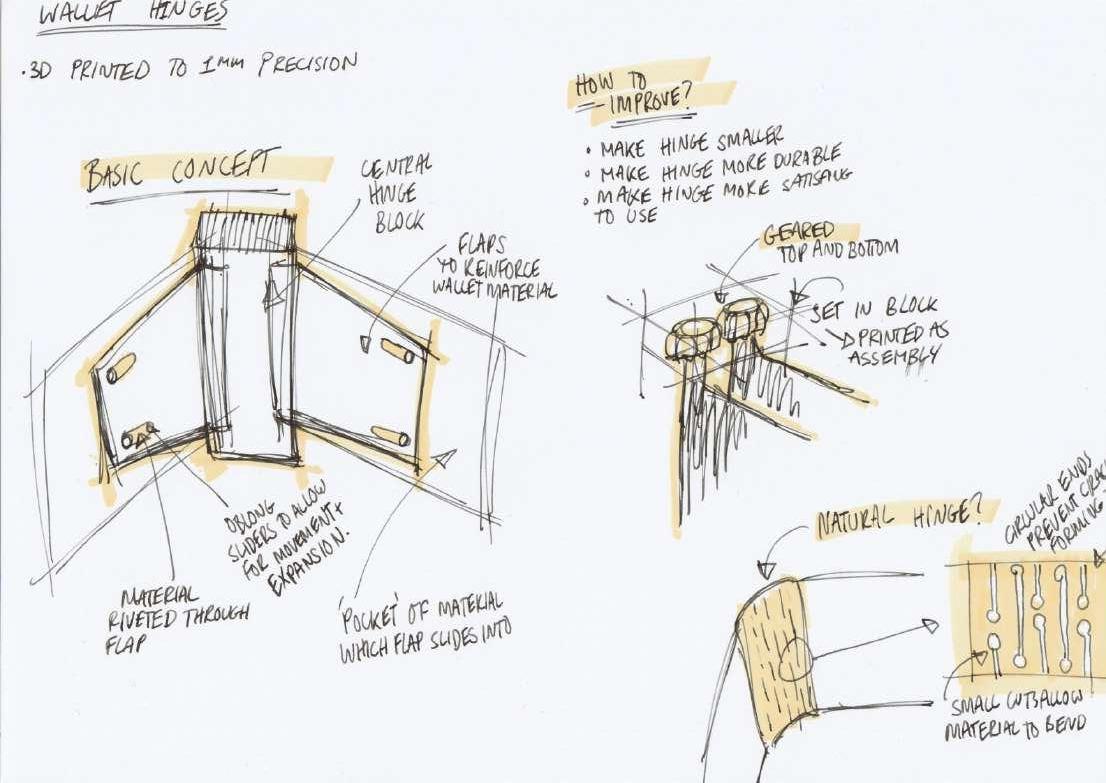 WALLET HINGES
·3D PRINTED TO 1MM PRECISION
BASIC CONCEPT
CENTRAL
HINGE
BLOCK
FLAPS
TO REINFORCE
WALLET MATERIAL
OBLONG
SLIDERS TO ALLOW
FOR MOVEMENT+
EXPANSION.
MATERIAL
RIVETED THROUGH
FLAP
'POCKET' OF MATERIAL
WHICH FLAP SLIDES INTO
HOW TO
IMPROVE?
• MAKE HINGE SMALLER
• MAKE HINGE MORE DURABLE
• MAKE HINGE MORE
TO USE
GEARED
TOP AND BOTTOM
SET IN BLOCK
PRINTED AS
ASSEMBLY
NATURAL HINGE?
CIRCULAR ENDS
PREVENT CRAC
FORMING.
SMALL CUTS ALLOW
MATERIAL TO BEND